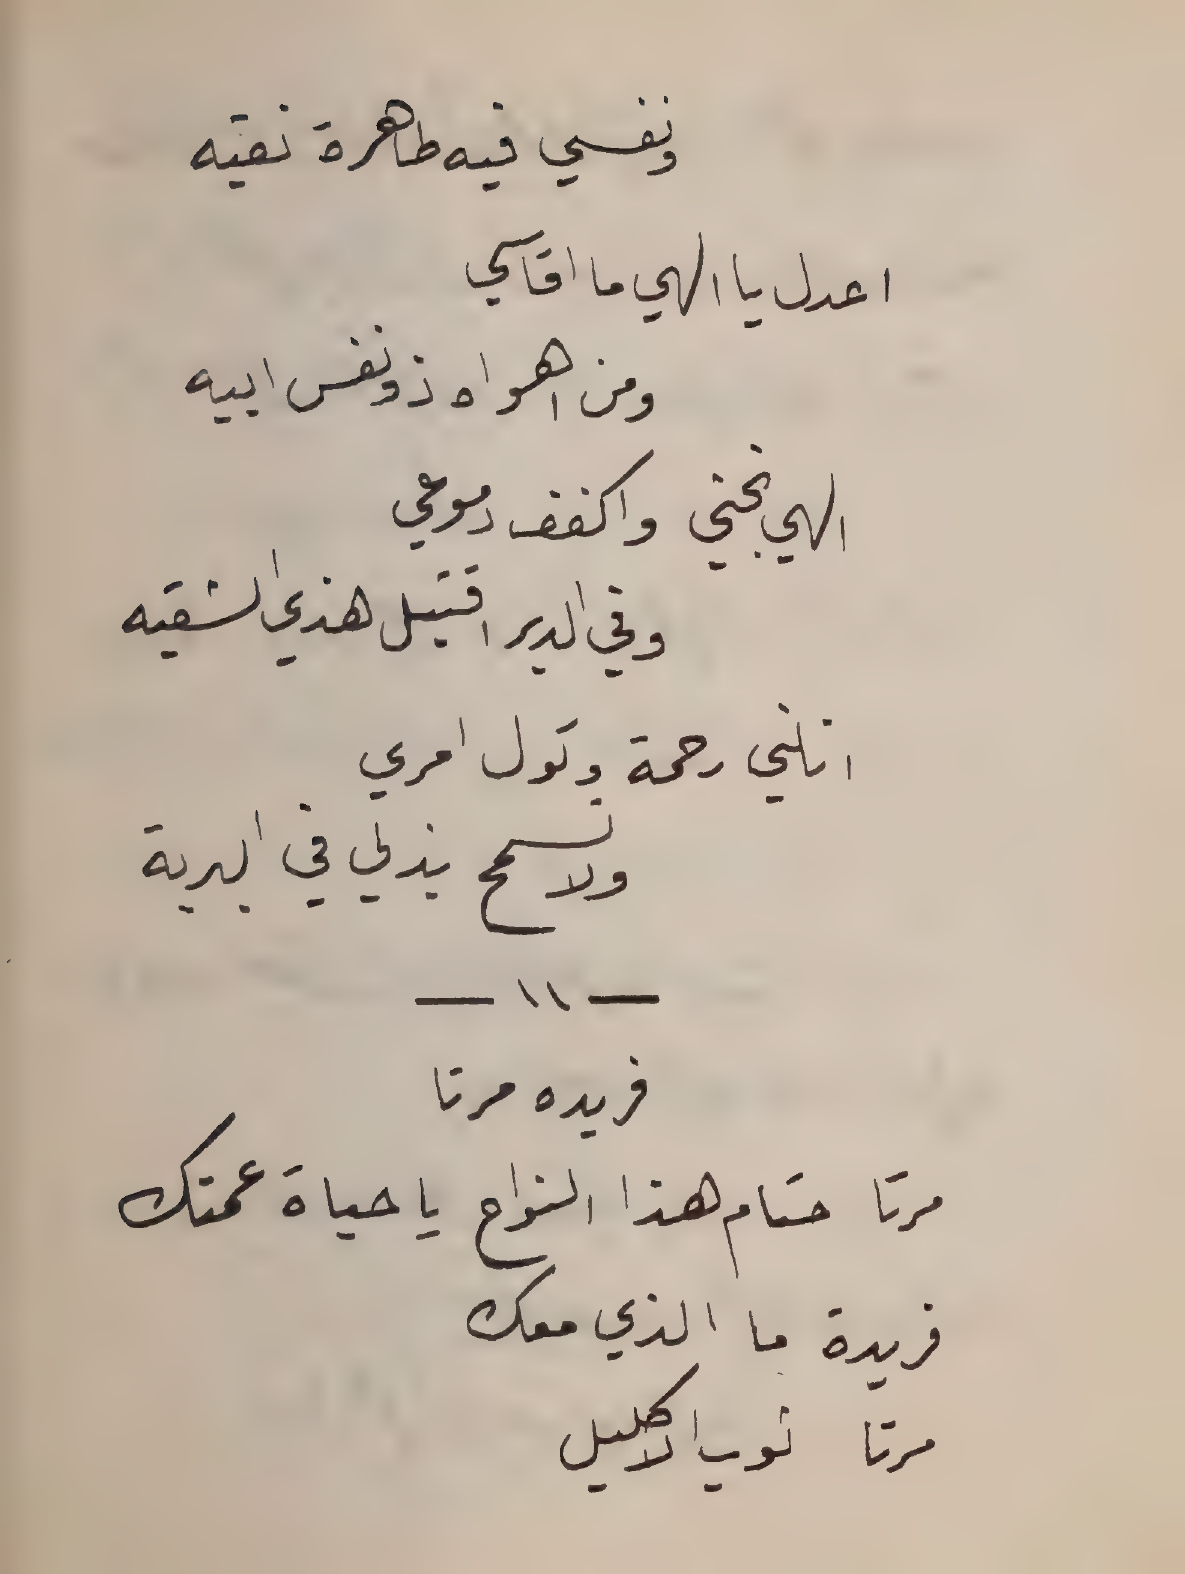 ونفسي فيه طاهرة نقيه
اعدل يا الهي ما اقاسي
ومن اهواه ذو نفس ابيه
الهي نجني واكفف دموعي
وفي الدير اقتبل هذي الشقيه
انلني رحمة وتول امري
ولا تسمح بذلي في البرية
— ١١ —
فريده مرتا
مرتا حتام هذا النواح يا حياة عمتك
فريدة ما الذي معك
مرتا ثوب الاكليل